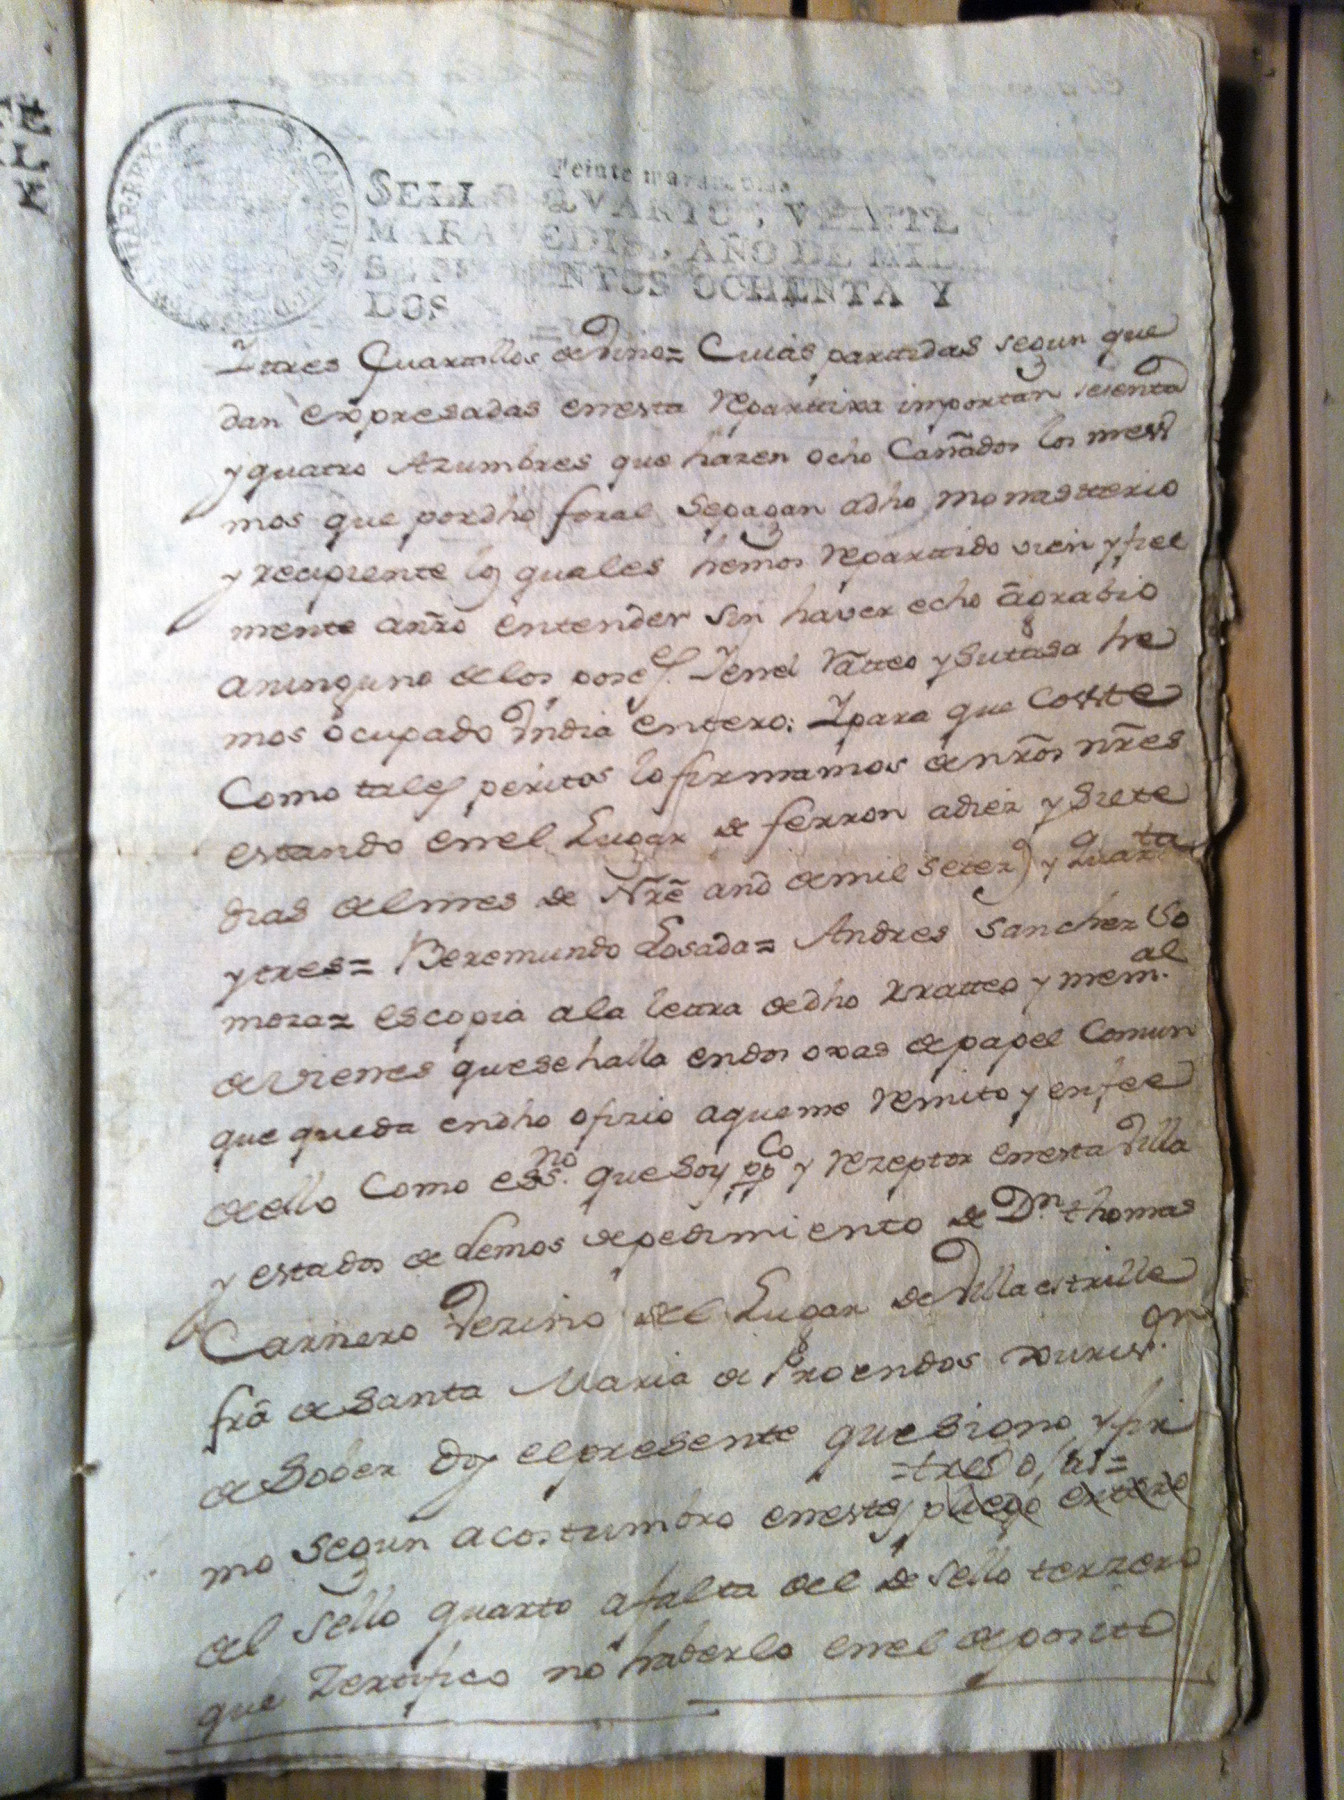 Veinte maravedis
SELLO QVARTO, VEINTE
MARAVEDIS, AÑO DE MIL
SETECIENTOS OCHENTA Y
DOS
CAROLUS III D G HISPANIAR REX
Y tres Quartillos de Vino= Cuias partidas segun que
dan expresadas enesta repartixa importan sesenta
y quatro Azumbres que hazen ocho Cañados los mess
mos que por dho foral se pagan a dho Monasterio
y recipiente los quales hemos repartido vien y fiel
mente a nrō entender sin haver echo agrabio
aninguno de los poseˢ. Y en el Ratteo y su tasa he
mos ocupado Vn dia entero: Y para que Coste
Como tales peritos lo firmamos de nrōs nrēs
estando en el Lugar de ferron a diez y siete
dias del mes de Nrē año de mil setezˢ y Quarᵗᵃ
y tres= Beremundo Losada= Andres Sanchez So
moza= es copia a la letra de dho Rratteo y memᵃˡ.
de vienes que se halla en dos oxas de papel Comun
que queda en dho ofizio a que me remito y en fee
de ello Como essⁿᵒ. que soy ppᶜᵒ y rezeptor enesta Villa
y estados de Lemos de pedimiento de Dⁿ. thomas
Carnero Vezino del Lugar de Villaestrille
frā de Santa Maria de Proendos xurisᵒⁿ.
de Sober doy el presente que signo y fir
=tres o,=
mo segun acostumbro enestes pliego entero
del sello quarto a falta del de sello terzero
que Zertifico no haberlo en el deposito